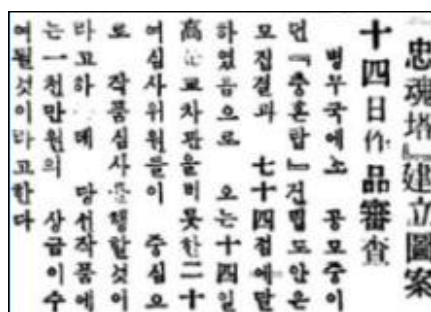 『忠魂塔』建立圖案
十四日作品審査
병무국에노 공모중이
던『충혼탑』건립도안은
모집결과 七十四점에달
하였음으로 오는十四일
高 교차관을비롯한二十
여심사위원들이 중심으
로 작품심사를행할것이
라고하 데 당선작품에
는一천만원의 상금이수
여될것이라고한다